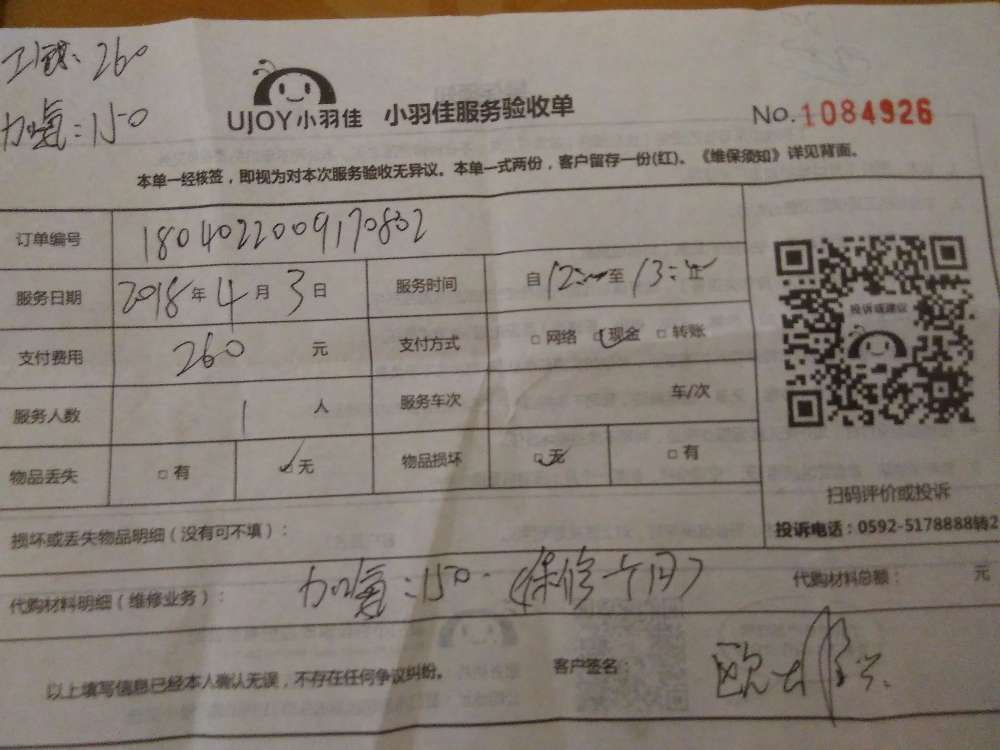 260
加氨：150
UJOY小羽佳 小羽佳服务验收单
No.1084926
本单一经核签，即视为对本次服务验收无异议。本单一式两份，客户留存一份(红)。《维保须知》详见背面。
订单编号 1804022009170832
服务日期 2018年4月3日 服务时间 自12:至13:止
支付费用 260 元 支付方式 □网络 □现金 □转账
服务人数 1 人 服务车次 车/次
物品丢失 □有 □无 物品损坏 □无 □有
投诉或建议
扫码评价或投诉
投诉电话：0592-5178888转2
损坏或丢失物品明细（没有可不填）：
代购材料明细（维修业务）： 加氨：150.（保修 个月） 代购材料总额： 元
以上填写信息已经本人确认无误，不存在任何争议纠纷。 客户签名： 欧